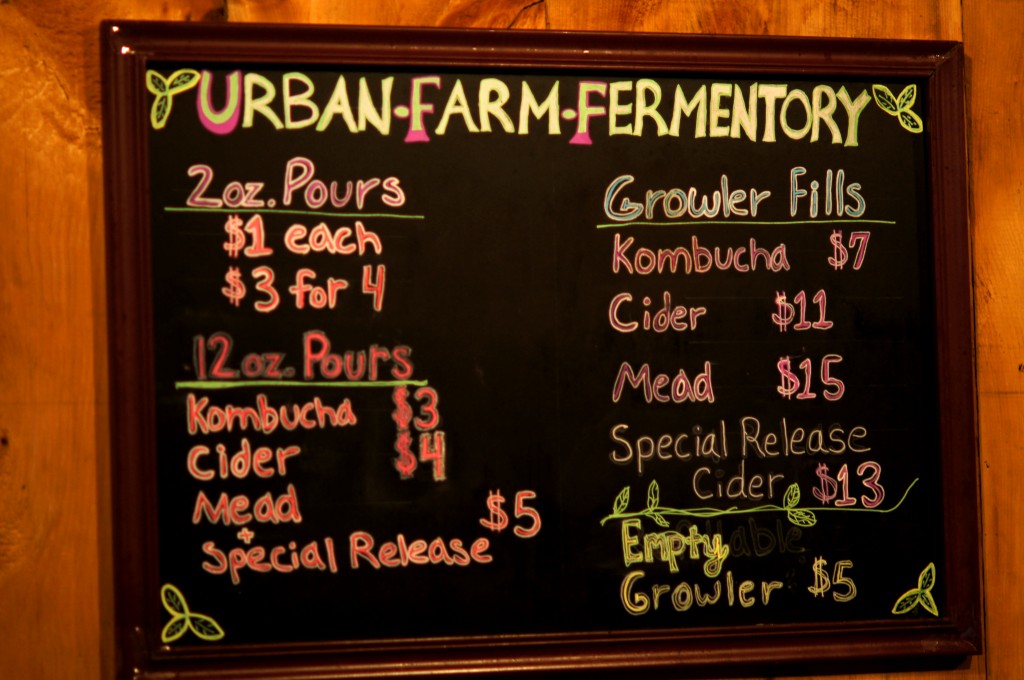 URBAN·FARM·FERMENTORY
2oz. Pours
$1 each
$3 for 4
12oz. Pours
Kombucha $3
Cider $4
Mead
+ $5
Special Release
Growler Fills
Kombucha $7
Cider $11
Mead $15
Special Release
Cider $13
Empty
Growler $5